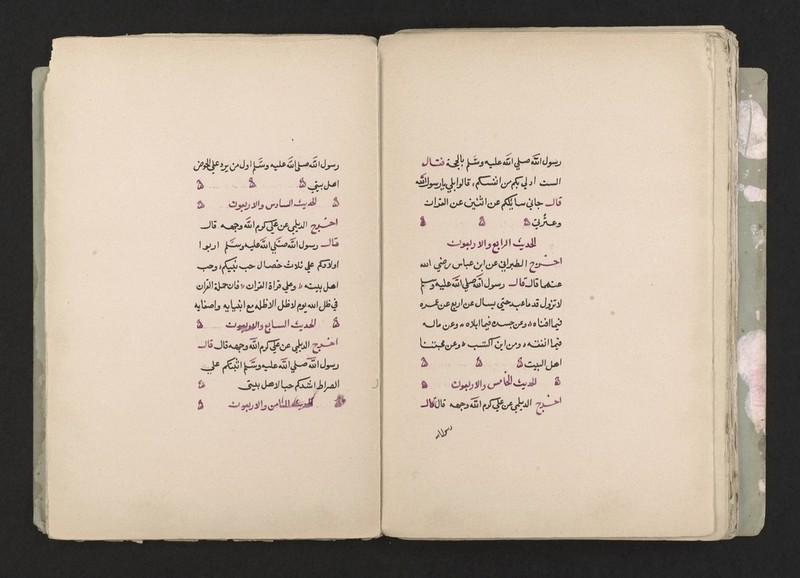 رسول الله صلي الله عليه وسلم بالجحفة فقال
الست اولي بكم من انفسكم، قالوا بلي يا رسول الله
قال فاني سايلكم عن اثنين عن القران
وعترتي
الحديث الرابع والاربعون
اخرج الطبراني عن ابن عباس رضي الله
عنهما قال قال رسول الله صلي الله عليه وسلم
لا تزول قدما عبد حتي يسال عن اربع عن عمره
فيما افناه وعن جسده فيما ابلاه وعن ماله
فيما انفقه ومن اين اكتسبه وعن محبتنا
اهل البيت
الحديث الخامس والاربعون
اخرج الديلمي عن علي كرم الله وجهه قال قال
رسول الله
رسول الله صلي الله عليه وسلم اول من يرد علي الحوض
اهل بيتي
الحديث السادس والاربعون
اخرج الديلمي عن علي كرم الله وجهه قال
قال رسول الله صلي الله عليه وسلم ادبوا
اولادكم علي ثلاث خصال حب نبيكم، وحب
اهل بيته وعلي قراة القران فان حملة القران
في ظل الله يوم لا ظل الا ظله مع انبيايه واصفيايه
الحديث السابع والاربعون
اخرج الديلمي عن علي كرم الله وجهه قال قال
رسول الله صلي الله عليه وسلم اثبتكم علي
الصراط اشدكم حبا لاهل بيتي
الحديث الثامن والاربعون